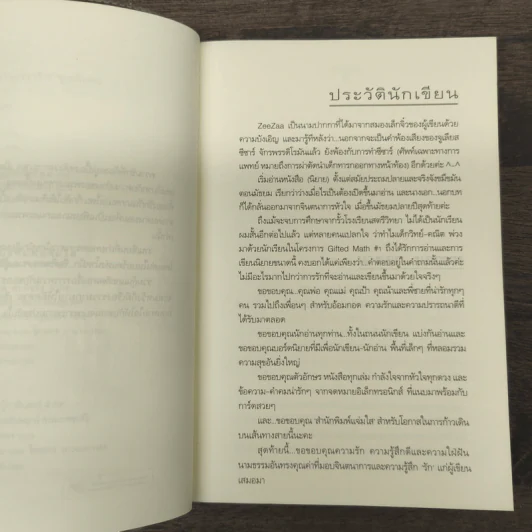 ประวัตินักเขียน
ZeeZaa เป็นนามปากกาที่ได้มาจากสมองเล็กจิ๋วของผู้เขียนด้วย
ความบังเอิญ และมารู้ทีหลังว่า..นอกจากจะเป็นคำพ้องเสียงของจูเลียส
ซีซาร์ จักรพรรดิโรมันแล้ว ยังพ้องกับการทำซีซาร์ (ศัพท์เฉพาะทางการ
แพทย์ หมายถึงการผ่าตัดนำเด็กทารกออกทางหน้าท้อง) อีกด้วยค่ะ ^-^
เริ่มอ่านหนังสือ (นิยาย) ตั้งแต่สมัยประถมปลายและจริงจังขมีขมัน
ตอนมัธยม เรียกว่าว่างเมื่อไรเป็นต้องเปิดขึ้นมาอ่าน และนางเอก..นอกบท
ก็ได้กลั่นออกมาจากจินตนาการหัวใจ เมื่อขึ้นมัธยมปลายปีสุดท้ายค่ะ
ถึงแม้จะจบการศึกษาจากรั้วโรงเรียนสตรีวิทยา ไม่ได้เป็นนักเรียน
ผมสั้นอีกต่อไปแล้ว แต่หลายคนแปลกใจ ว่าทำไมเด็กวิทย์-คณิต พ่วง
มาด้วยนักเรียนในโครงการ Gifted Math #1 ถึงได้รักการอ่านและการ
เขียนนิยายขนาดนี้ คงบอกได้แค่เพียงว่า..คำตอบอยู่ในคำถามนั้นแล้วค่ะ
ไม่มีอะไรมากไปกว่าการรักที่จะอ่านและเขียนขึ้นมาด้วยใจจริงๆ
ขอขอบคุณ...คุณพ่อ คุณแม่ คุณป้า คุณน้าและพี่ชายที่น่ารักทุกๆ
คน รวมไปถึงเพื่อนๆ สำหรับอ้อมกอด ความรักและความปรารถนาดีที่
ได้รับมาตลอด
ขอขอบคุณนักอ่านทุกท่าน...ทั้งในถนนนักเขียน แบ่งกันอ่านและ
ขอขอบคุณบอร์ดนิยายที่มีเพื่อนักเขียน-นักอ่าน พื้นที่เล็กๆ ที่หลอมรวม
ความสุขอันยิ่งใหญ่
ขอขอบคุณตัวอักษร หนังสือทุกเล่ม กำลังใจจากหัวใจทุกดวง และ
ข้อความ-คำคมน่ารักๆ จากจดหมายอิเล็กทรอนิกส์ ที่แนบมาพร้อมกับ
การ์ดสวยๆ
และ...ขอขอบคุณ 'สำนักพิมพ์แจ่มใส' สำหรับโอกาสในการก้าวเดิน
บนเส้นทางสายนี้นะคะ
สุดท้ายนี้...ขอขอบคุณความรัก ความรู้สึกดีและความใฝ่ฝัน
นามธรรมอันทรงคุณค่าที่มอบจินตนาการและความรู้สึก 'รัก' แก่ผู้เขียน
เสมอมา